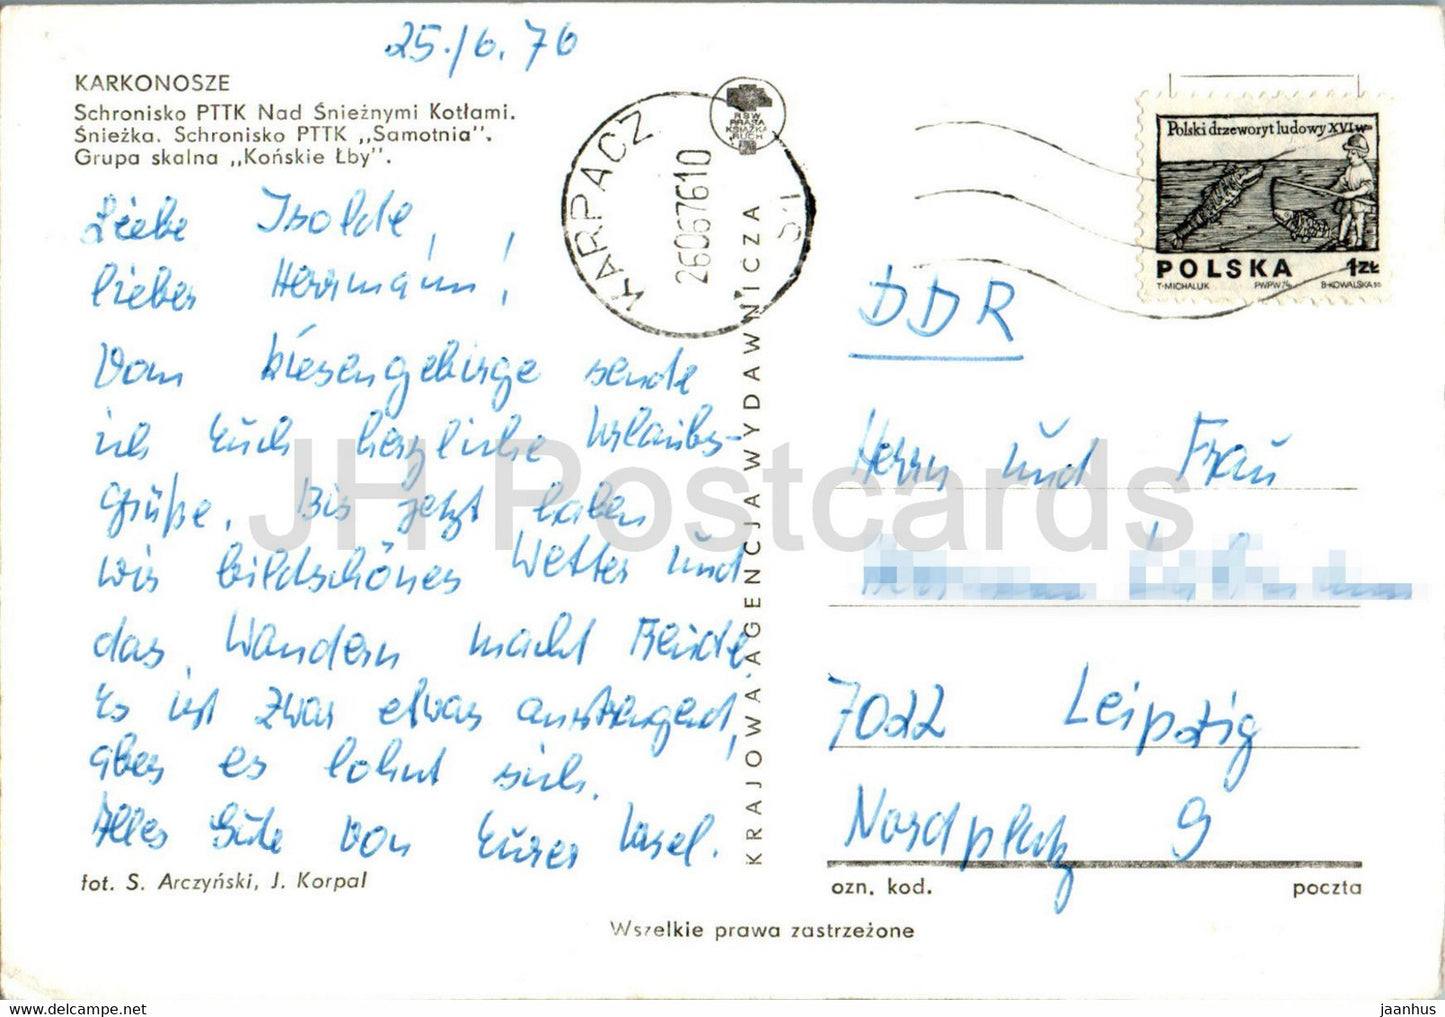 25./6.76
KARKONOSZE
Schronisko PTTK Nad Śnieżnymi Kotłami.
Śnieżka. Schronisko PTTK „Samotnia".
Grupa skalna „Końskie Łby".
Liebe Isolde,
lieber Herrmann!
Vom Riesengebirge sende
ich Euch herzliche Urlaubs-
grüße. Bis jetzt haben
wir bildschönes Wetter und
das Wandern macht Freude.
Es ist zwar etwas anstrengend,
aber es lohnt sich.
Alles Gute von Eurer Ursel.
fot. S. Arczyński, J. Korpal
KARPACZ
26067610
RSW
PRASA
KSIĄŻKA
RUCH
KRAJOWA AGENCJA WYDAWNICZA
Polski drzeworyt ludowy XVI w
POLSKA 1ZŁ
T·MICHALUK PWPW 74 B·KOWALSKA SC
DDR
Herrn und Frau
7022 Leipzig
Nordplatz 9
ozn. kod. poczta
Wszelkie prawa zastrzeżone
JH Postcards
https://jhpostcards.com/ jaanhus